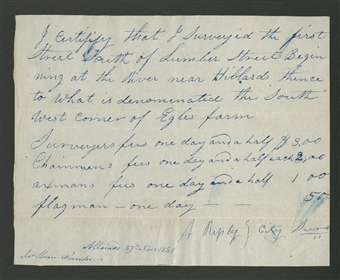 I certify that I Survey'd the first
Street South of Lumber Street Begin
ning at the River near Hibbards thence
to what is denominated the South
West corner of Egles farm
Surveyors fees one day and a half $3,00
Chainmens fees one day and a half each 3,00
axmans fees one day and a half 1 00
flagman - one day - 50
A Rapby } City
1841